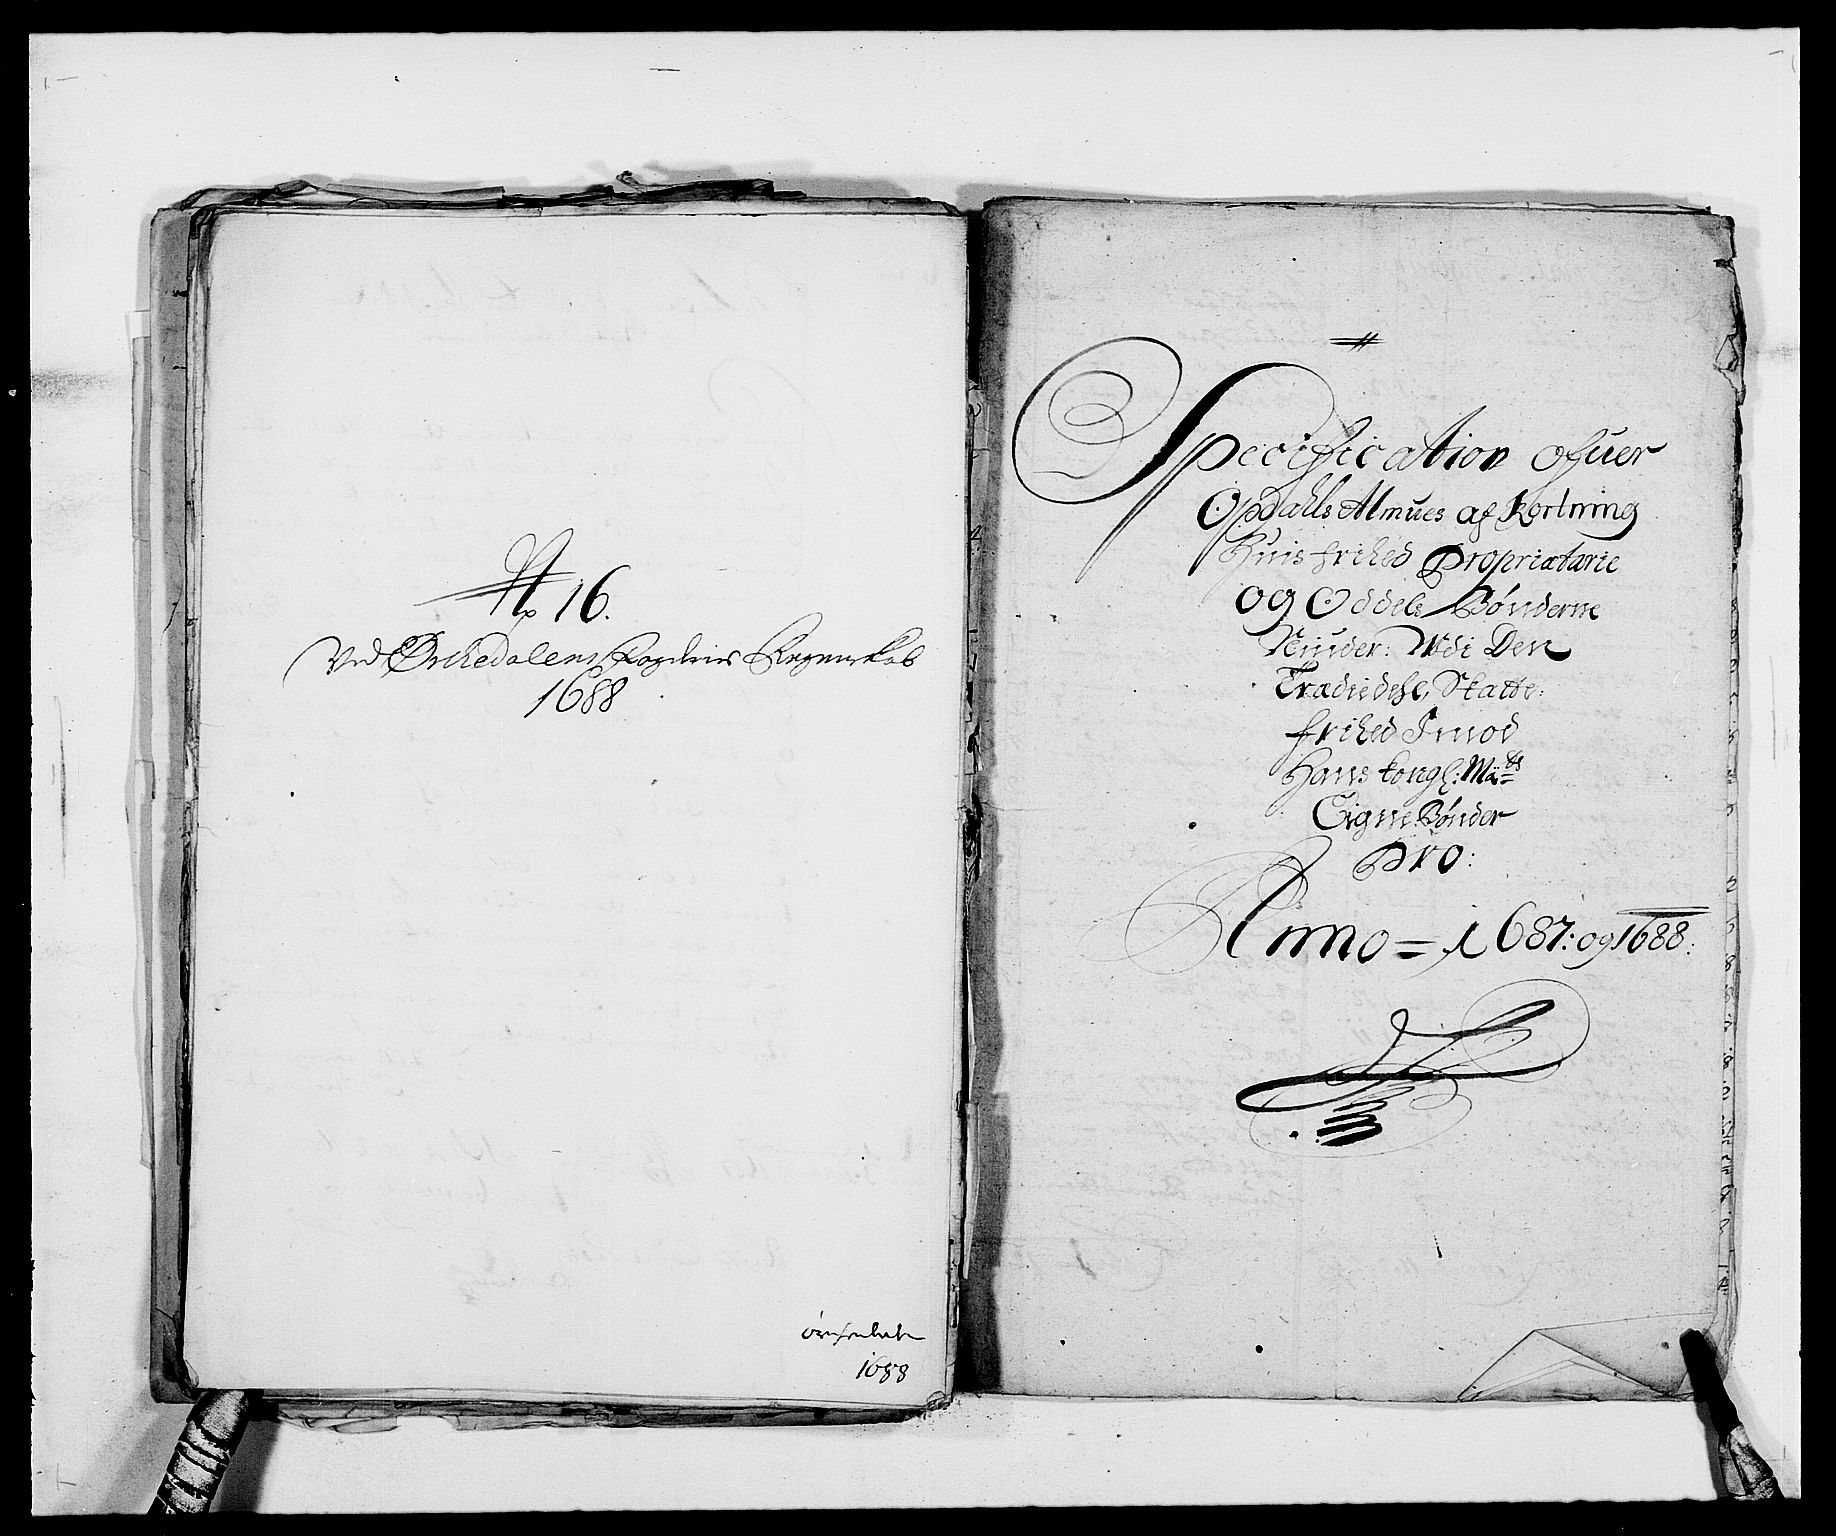 No 16.
Ved Orchedalens Fogderies Regenskab
1688
1688
Specification ofuer
Opdahls Almues af Kortning
Huis frihed Propriætarie
og Oddels Bønderne
Niuder: Udi Den
Trædiedehl, Skatte:
frihed Imod
Hans Kongl: Maÿts
Eigne Bønder
Pro:
Anno = 1687: og 1688: